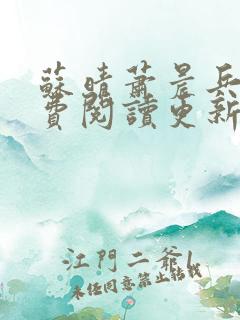 蘇晴蕭晨兵
費閱讀更新
江門二爺l
未經同意禁止轉載